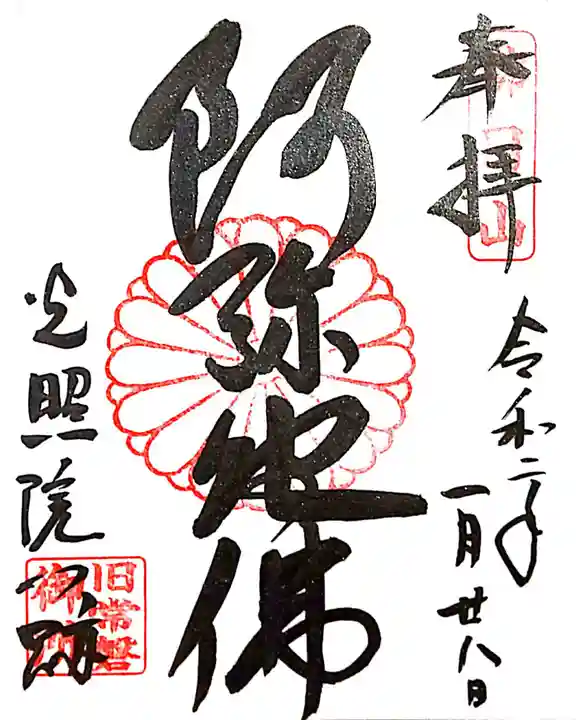 奉拝
令和二年
一月廿八日
阿弥陀佛
光照院門跡
旧常磐
御所